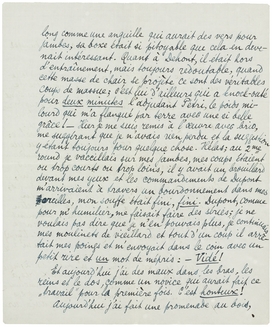 long comme une anguille qui aurait des vers pour
jambes, sa boxe était si pitoyable que cela en deve-
nait intéressant. Quant à Dehont, il était hors
d'entraînement, mais toujours redoutable, quand
cette masse de chair se projète ce sont des véritables
coups de massue; c'est lui d'ailleurs qui a knock-outé
pour deux minutes l'adjudant Petri, le poids mi-
lourd qui m'a flanqué par terre avec une si belle
grâce! — Hier je me suis remis à l'œuvre avec brio,
me suggérant que je n'avais rien perdu et la suggestion
y étant toujours pour quelque chose. Hélas; au 2me
round je vacillais sur mes jambes, mes coups étaient
ou trop courts ou trop loins, il y avait un brouillard
devant mes yeux et les commandements du Dupont
m'arrivaient à travers un bourdonnement dans mes
oreilles, mon souffle était fini, fini. Dupont, comme
pour m'humilier, me faisait faire des séries; je ne
voulais pas dire que je n'en pouvais plus, je continuais
mes moulinets de vieillard et lui d'un coup il arrê-
tait mes poings et m'envoyait dans le coin avec un
petit rire et un mot de mépris: — Vidé!
Et aujourd'hui j'ai des maux dans les bras, les
reins et le dos, comme un novice qui aurait fait ce
travail pour la première fois. C'est honteux!
Aujourd'hui j'ai fait une promenade au bois,